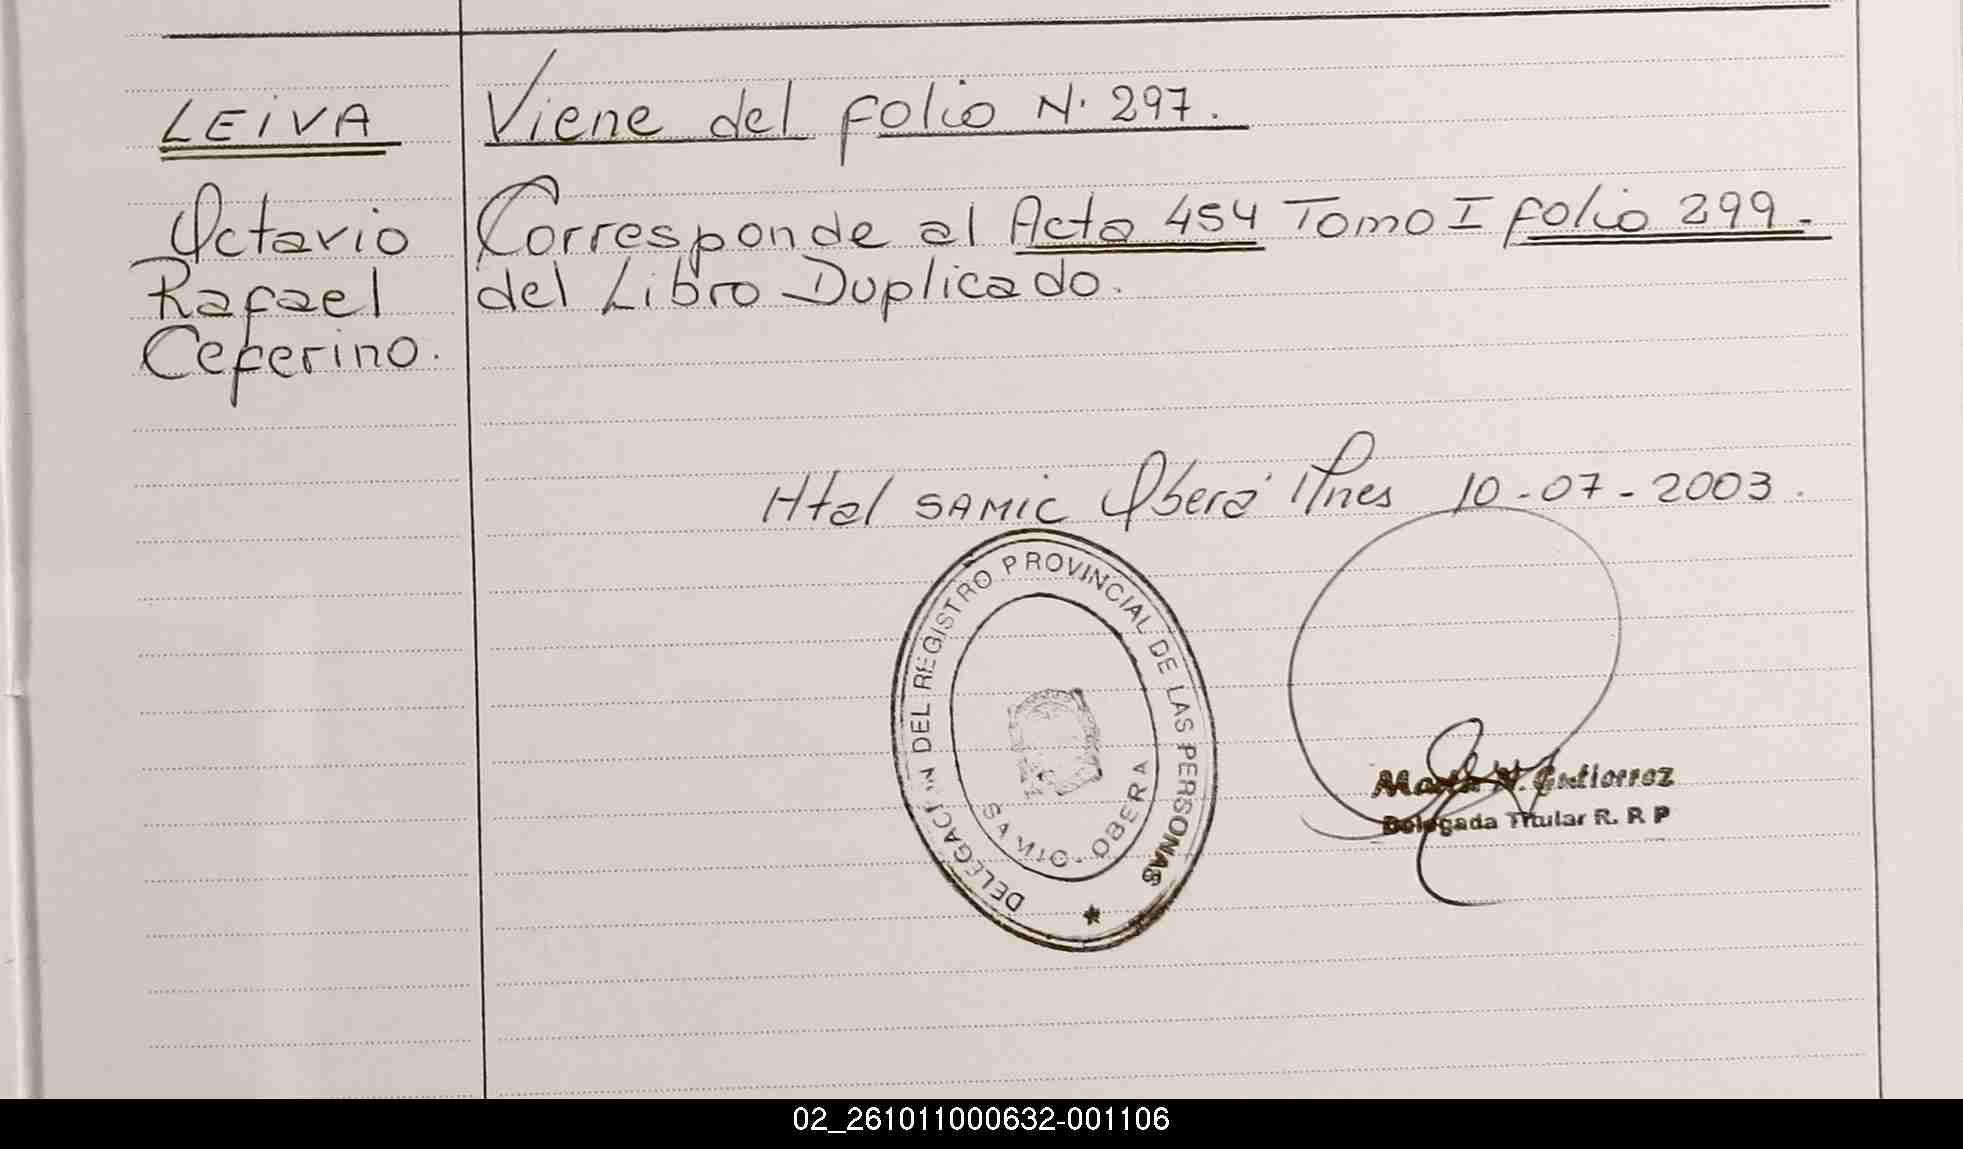 LEIVA
Octavio
Rafael
Ceferino.
Viene del folio N. 297.
Corresponde al Acta 454 Tomo I folio 299.
del Libro Duplicado.
Htal SAMIC Oberá Mnes 10-07-2003.
DELEGACION DEL REGISTRO PROVINCIAL DE LAS PERSONAS
SAMIC - OBERA
N. Gutierrez
Delegada Titular R. R P
02_261011000632-001106